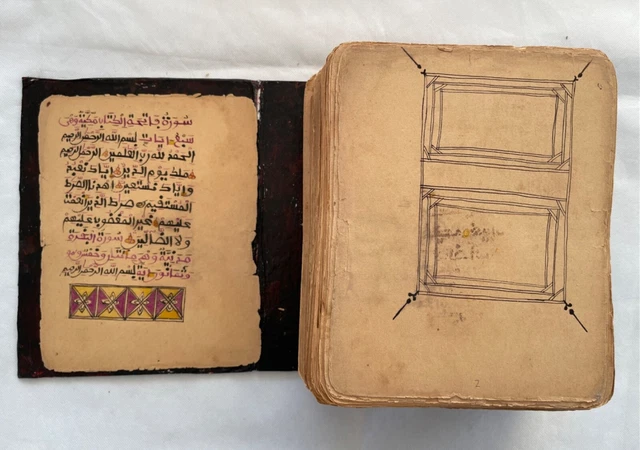 سورة فاتحة الكتاب مكية وهي
سبع ايات بسم الله الرحمن الرحيم
الحمد لله رب العلمين الرحمن الرحيم
ملك يوم الدين اياك نعبد
واياك نستعين اهدنا الصرط
المستقيم صرط الذين انعمت
عليهم غير المغضوب عليهم
ولا الضالين سورة البقرة
مدنية وهي مائتان وخمس
بسم الله الرحمن الرحيم
2